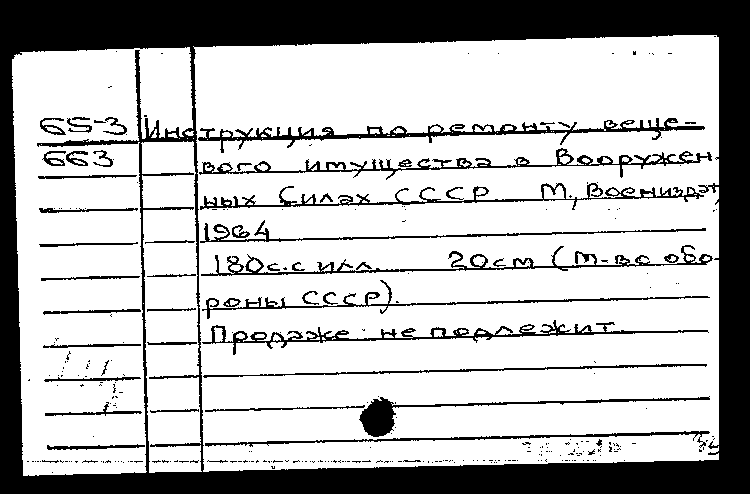 65-3 Инструкция по ремонту веще-
663 вого имущества в Вооружен-
ных Силах СССР М., Воениздат,
1964
180с. с илл. 20см (М-во обо-
роны СССР).
Продаже не подлежит.